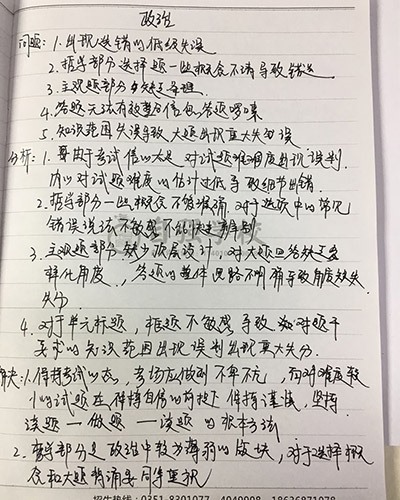 政治
问题：1.出现选错的低级失误
2.哲学部分选择题一些概念不清导致错选
3.主观题部分缺乏条理
4.答题无法有效整合信息，答题啰嗦
5.知识范围失误导致大题出现重大失误
分析：1.要由于考试信心太足，对试题难度出现误判
内心对试题难度的估计过低导致细节出错.
2.哲学部分一些概念不够准确，对于选项中的常见
错误说法不敏感不能快速辨别
3.主观题部分缺少顶层设计，对大题回答缺乏多
样化角度，答题的整体思路不明确导致角度缺失
失分.
4.对于单元标题，框题不敏感导致对题干
要求的知识范围出现误判出现重大失分.
解决：1.保持考试心态，考场应做到不卑不亢，面对难度较
小的试题在保持自信的前提下保持谨慎，坚持
读题一做题一读题的根本方法
2.哲学部分是政治中较为薄弱的版块，对于选择概
念和大题背诵要同等重视
招生热线：0351-8301077 4049098 18636871978